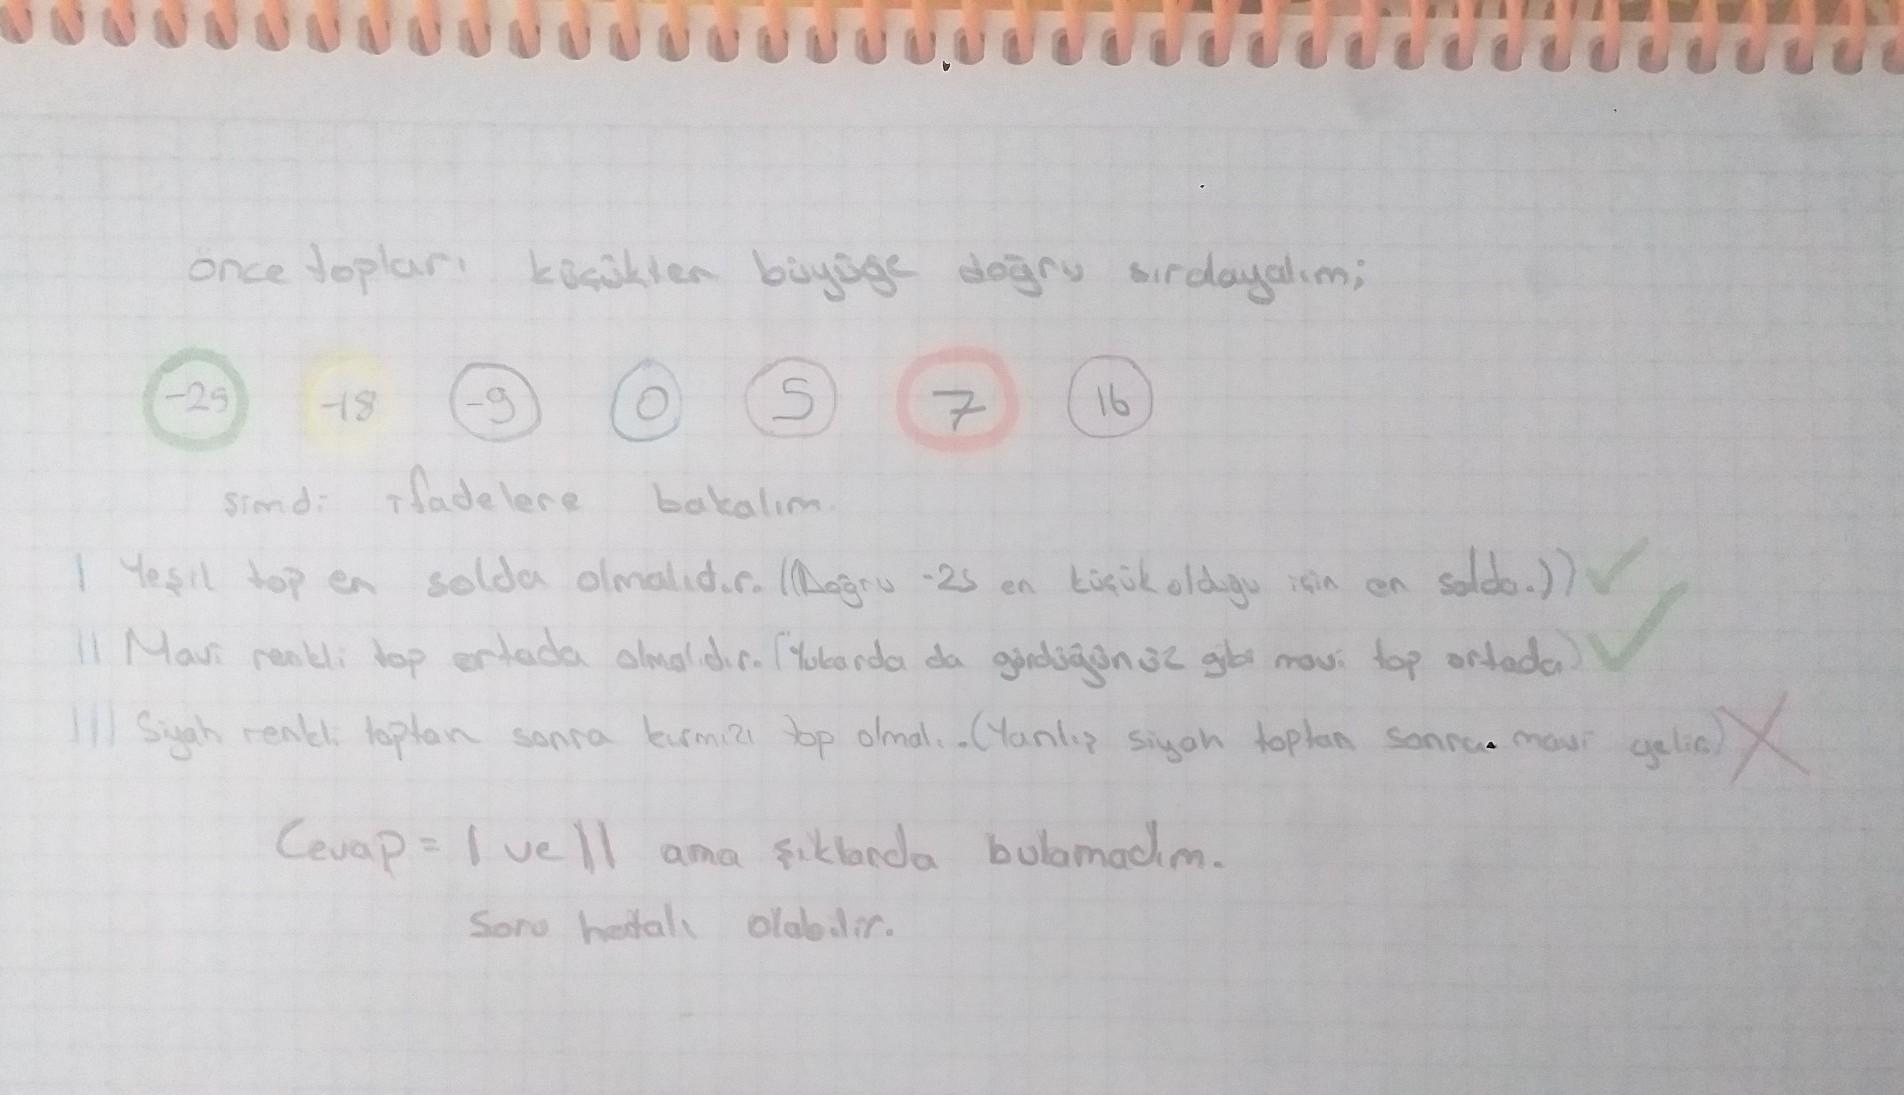 önce topları küçükten büyüğe doğru sırdayalım;
-25 -18 -9 0 5 7 16
Şimdi ifadelere bakalım.
I Yeşil top en solda olmalıdır. ((Doğru -25 en küçük olduğu için en solda.))
II Mavi renkli top ortada olmalıdır. (Yukarda da gördüğünüz gibi mavi top ortada)
III Siyah renkli toptan sonra kırmızı top olmalı. (Yanlış siyah toptan sonra mavi gelir)
Cevap = I ve II ama şıklarda bulamadım.
Soru hatalı olabilir.